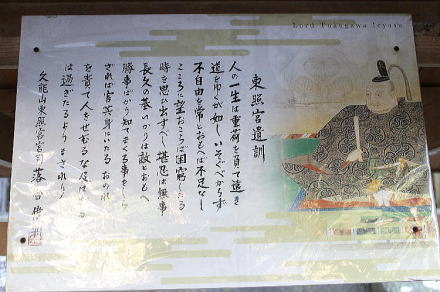 Lord Tokugawa Ieyasu
東照宮遺訓
人の一生は重荷を負て遠き
道を行くが如し いそぐべからず
不自由を常とおもへば不足なし
こころに望おこらば困窮したる
時を思ひ出すべし 堪忍は無事
長久の基 いかりは敵とおもへ
勝事ばかり知てまくる事をしら
ざれば害其身にいたる おのれ
を責て人をせむるな 及ばざる
は過ぎたるよりまされり
久能山東照宮宮司 落合